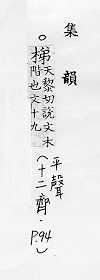 集韻
○梯天黎切說文木
階也文十九
(平聲
十二齊. P.94)